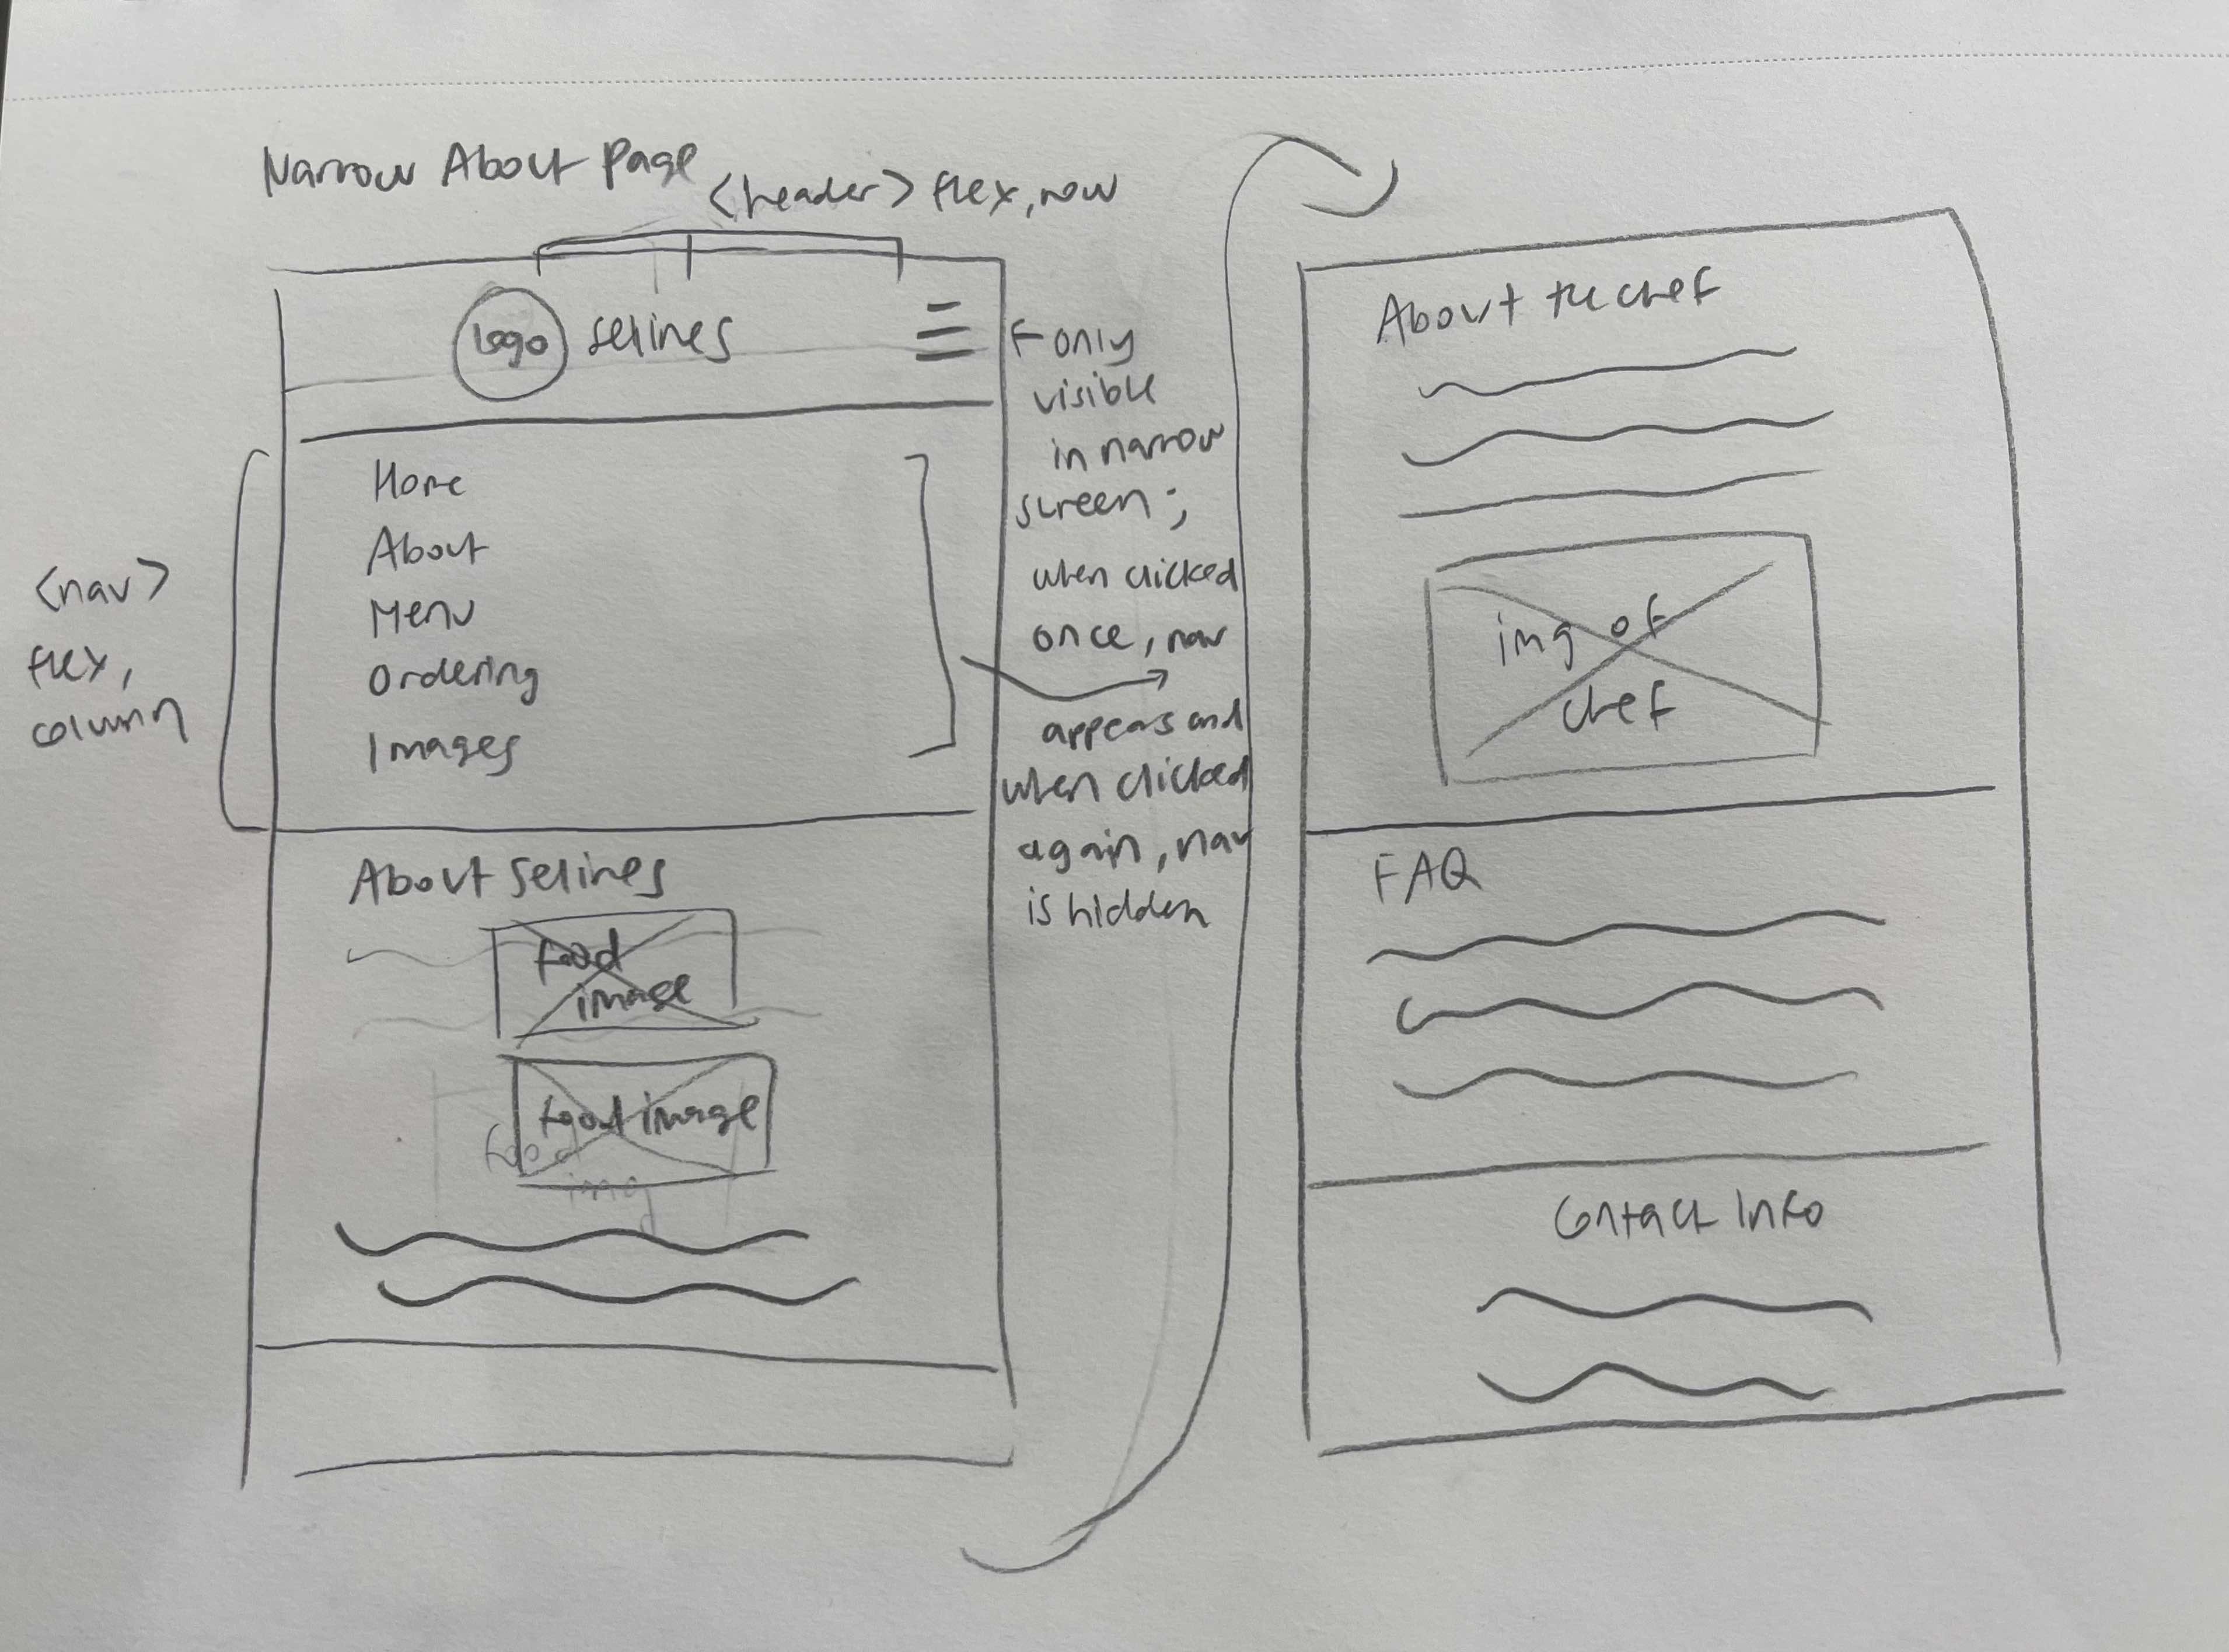 Narrow About Page
<header> flex, row
Logo
selines
← only
visible
in narrow
screen;
when clicked
once, nav
appears and
when clicked
again, nav
is hidden
Home
About
Menu
Ordering
Images
<nav>
flex,
column
About selines
food
image
food image
food
img
About the chef
img of
chef
FAQ
Contact Info